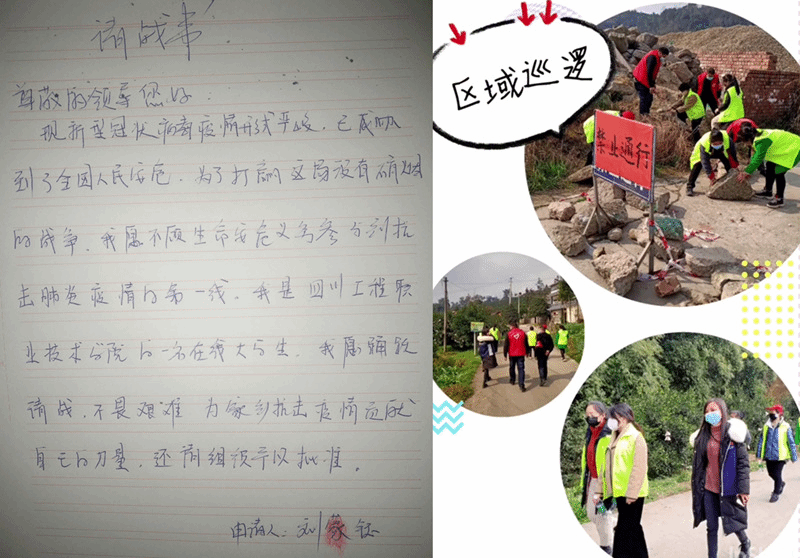 请战书
尊敬的领导您好
现新型冠状病毒疫情形势严峻，已威胁
到了全国人民安危，为了打赢这场没有硝烟
的战争，我愿不顾生命安危义务参与到抗
击肺炎疫情的第一线。我是四川工程职
业技术学院的一名在线大学生，我愿
请战，不畏艰难 为家乡抗击疫情贡献
自己的力量，还请组织予以批准。
申请人：刘
区域巡逻
禁止通行